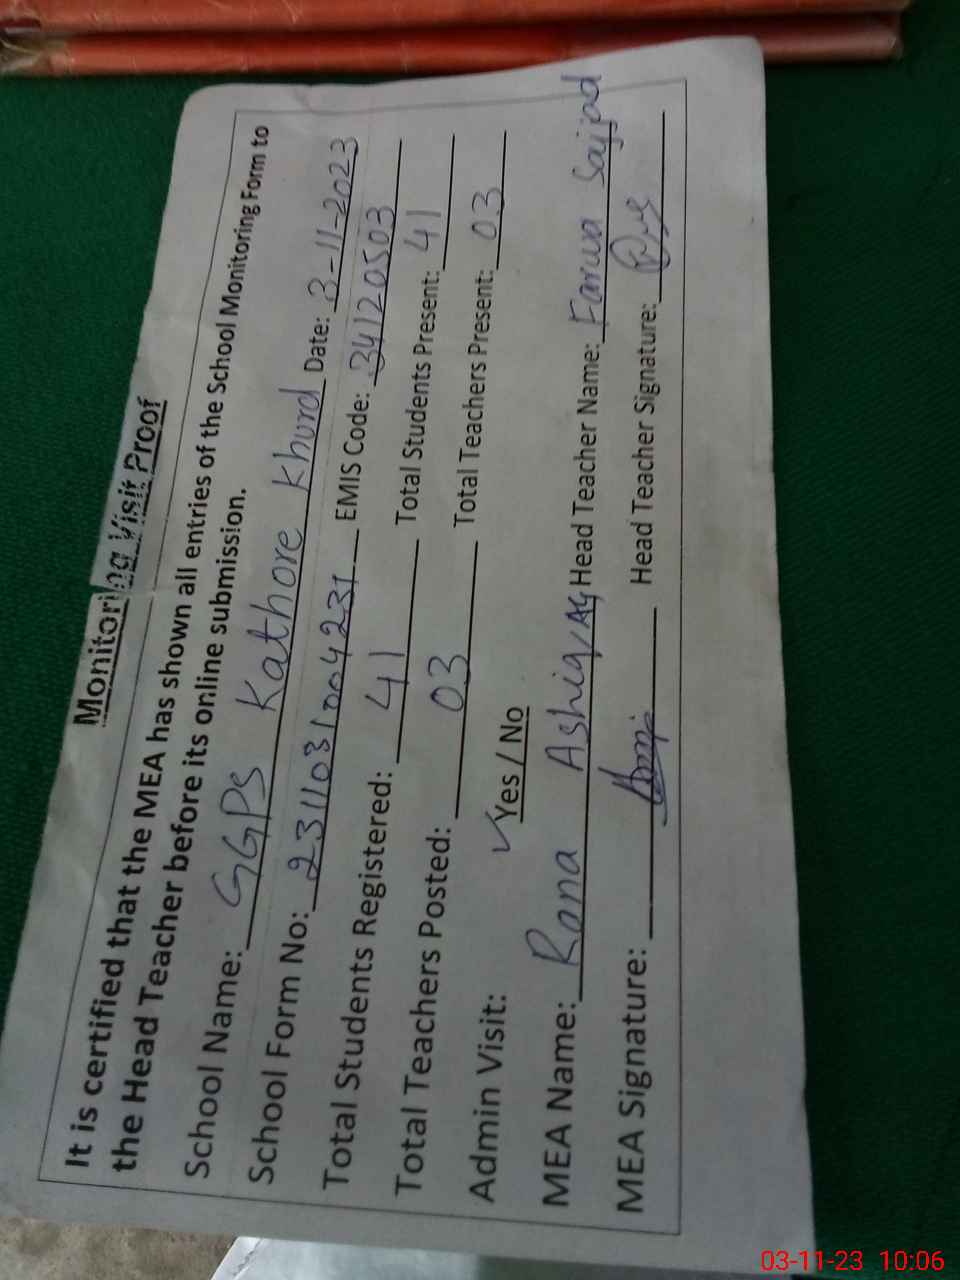 Monitoring Visit Proof
It is certified that the MEA has shown all entries of the School Monitoring Form to
the Head Teacher before its online submission.
School Name: GGPS Kathore Khurd Date: 3-11-2023
School Form No: 2311031004231 EMIS Code: 34120503
Total Students Registered: 41 Total Students Present: 41
Total Teachers Posted: 03 Total Teachers Present: 03
Admin Visit: ✓Yes / No
MEA Name: Rana Ashiq Head Teacher Name: Farwa Sajjad
MEA Signature: Head Teacher Signature:
03-11-23 10:06